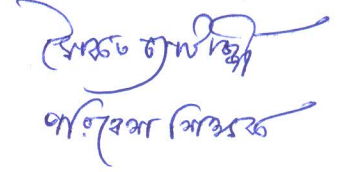 সৈকত চ্যাটার্জ্জী
পরিবেশ শিক্ষক